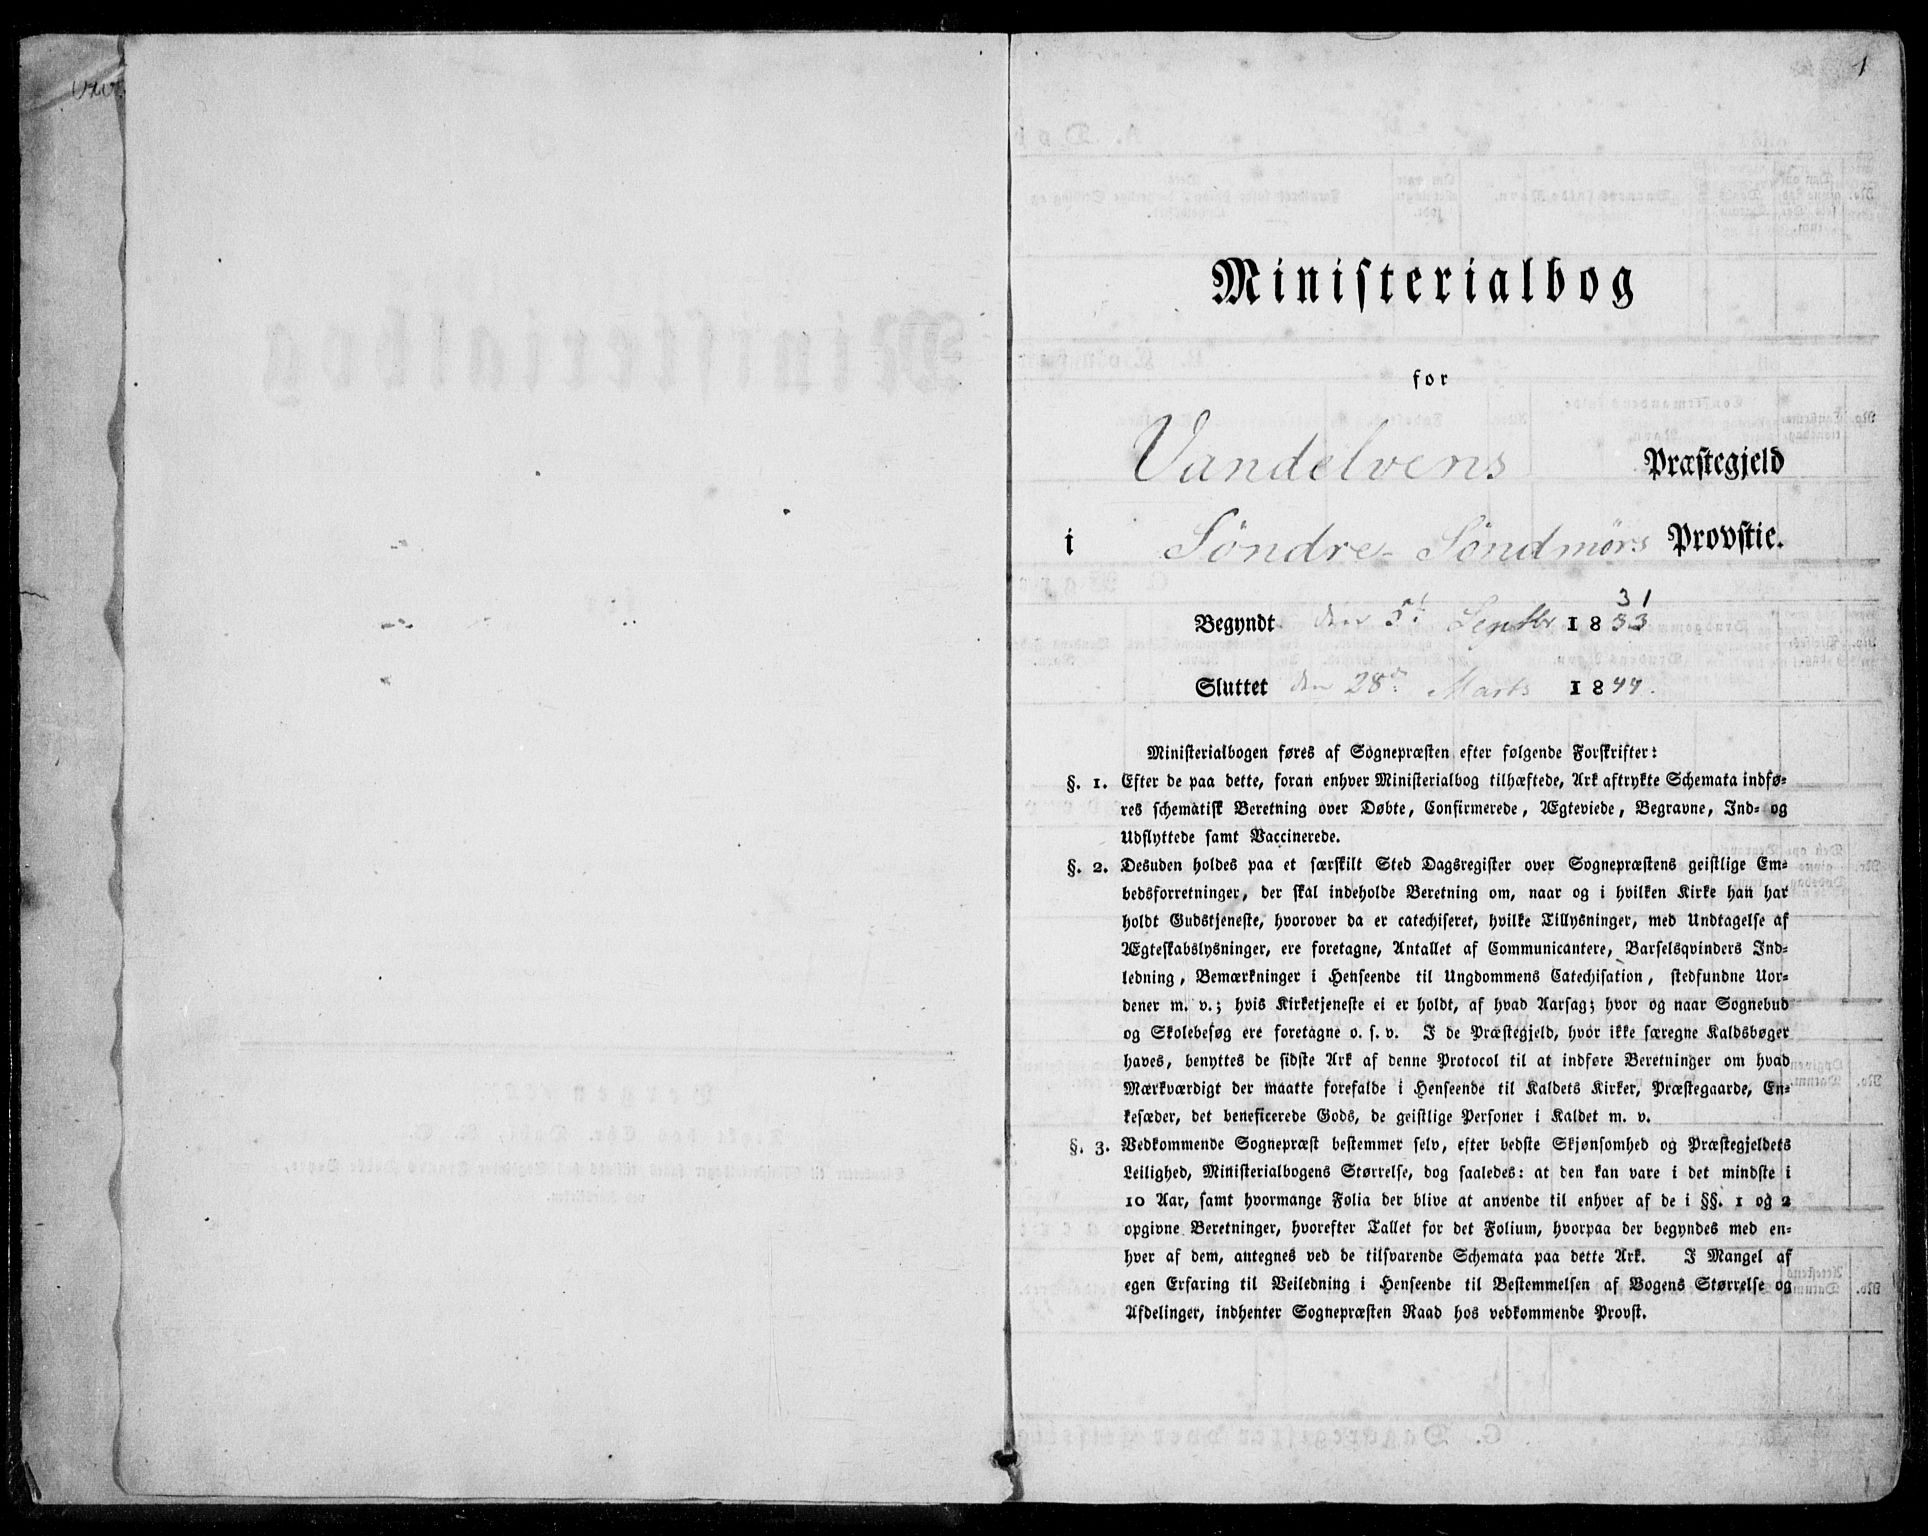 1
Ministerialbog
for
Vandelvens Præstegjeld
i Søndre-Søndmørs Provstie.
31
Begyndt den 5t Septbr 1833
Sluttet den 28de Marts 1844.
Ministerialbogen føres af Sognepræsten efter følgende Forskrifter:
§. 1. Efter de paa dette, foran enhver Ministerialbog tilhæftede, Ark aftrykte Schemata indfø-
res schematisk Beretning over Døbte, Confirmerede, Ægteviede, Begravne, Ind- og
Udflyttede samt Vaccinerede.
§. 2. Desuden holdes paa et særskilt Sted Dagsregister over Sognepræstens geistlige Em-
bedsforretninger, der skal indeholde Beretning om, naar og i hvilken Kirke han har
holdt Gudstjeneste, hvorover da er catechiseret, hvilke Tillysninger, med Undtagelse af
Ægteskabslysninger, ere foretagne, Antallet af Communicantere, Barselqvinders Ind-
ledning, Bemærkninger i Henseende til Ungdommens Catechisation, stedfundne Uor-
dener m. v.; hvis Kirketjeneste ei er holdt, af hvad Aarsag; hvor og naar Sognebud
og Skolebesøg ere foretagne o. s. v. I de Præstegjeld, hvor ikke særegne Kaldsbøger
haves, benyttes de sidste Ark af denne Protocol til at indføre Beretninger om hvad
Mærkværdigt der maatte forefalde i Henseende til Kaldets Kirker, Præstegaarde, En-
kesæder, det beneficerede Gods, de geistlige Personer i Kaldet m. v.
§. 3. Vedkommende Sognepræst bestemmer selv, efter bedste Skjønsomhed og Præstegjeldets
Leilighed, Ministerialbogens Størrelse, dog saaledes: at den kan vare i det mindste i
10 Aar, samt hvormange Folia der blive at anvende til enhver af de i §§. 1 og 2
opgivne Beretninger, hvorefter Tallet for det Folium, hvorpaa der begyndes med en-
hver af dem, antegnes ved de tilsvarende Schemata paa dette Ark. I Mangel af
egen Erfaring til Veiledning i Henseende til Bestemmelsen af Bogens Størrelse og
Afdelinger, indhenter Sognepræsten Raad hos vedkommende Provst.